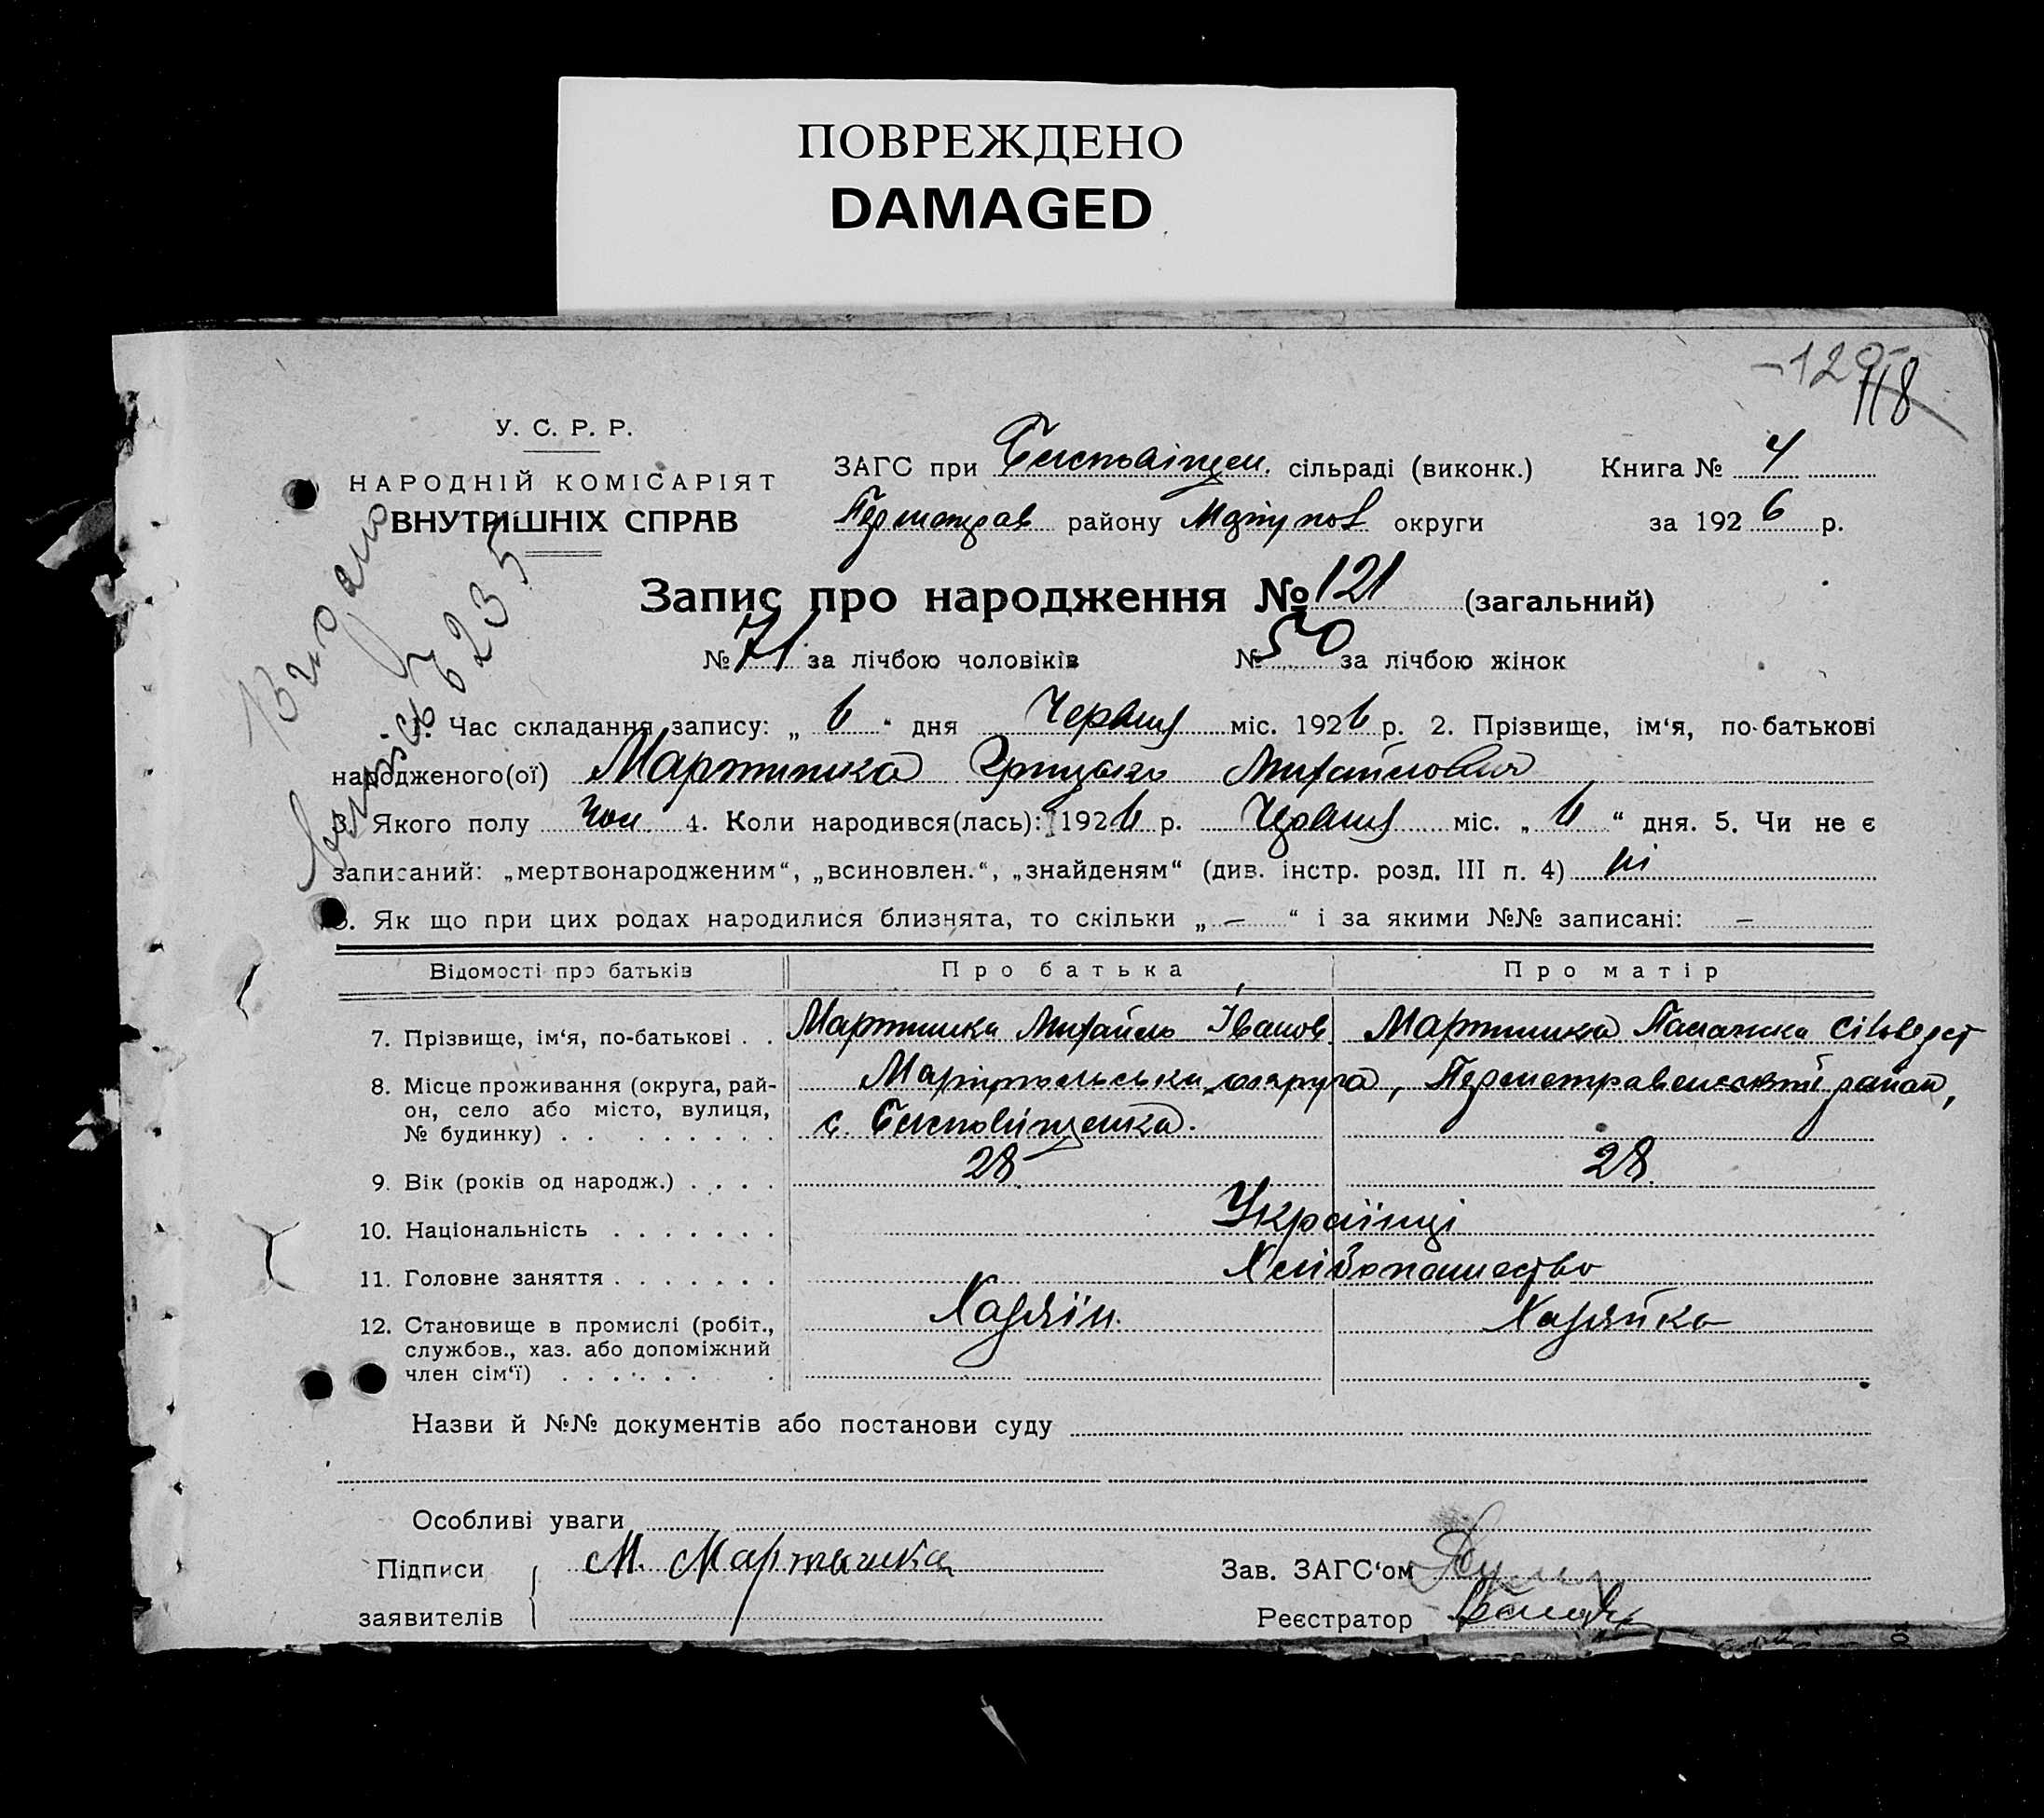 ПОВРЕЖДЕНО
DAMAGED
118
У. С. Р. Р.
НАРОДНІЙ КОМІСАРІЯТ
ВНУТРІШНІХ СПРАВ
ЗАГС при сільраді (виконк.) Книга № 4
району округи за 1926 р.
Видано
6235
Запис про народження № 121 (загальний)
№ 71 за лічбою чоловіків № 50 за лічбою жінок
1. Час складання запису: „ 6 “ дня Червня міс. 1926 р. 2. Прізвище, ім‘я, по-батькові
народженого(ої) Мартишка Грицько Михайлович
3. Якого полу чол. 4. Коли народився(лась): 1926 р. Червня міс. „ 6 “ дня. 5. Чи не є
записаний: „мертвонародженим“, „всиновлен.“, „знайденям“ (див. інстр. розд. III п. 4) ні
6. Як що при цих родах народилися близнята, то скільки „ — “ і за якими №№ записані: —
Відомості про батьків Про батька Про матір
7. Прізвище, ім‘я, по-батькові . . Мартишка Михайло Іванов. Мартишка Палажка Сільверст
8. Місце проживання (округа, рай- Маріупольська округа, Першотравенський район,
он, село або місто, вулиця, с.
№ будинку) . . . . . . . . .
9. Вік (років од народж.) . . . . 28 28.
10. Національність . . . . . . . Українці
11. Головне заняття . . . . . . . Хлібопашество
12. Становище в промислі (робіт., Хазяїн. Хазяйка
службов., хаз. або допоміжний
член сім‘ї) . . . . . . .
Назви й №№ документів або постанови суду
Особливі уваги
Підписи М. Мартышка Зав. ЗАГС‘ом
заявителів Реєстратор